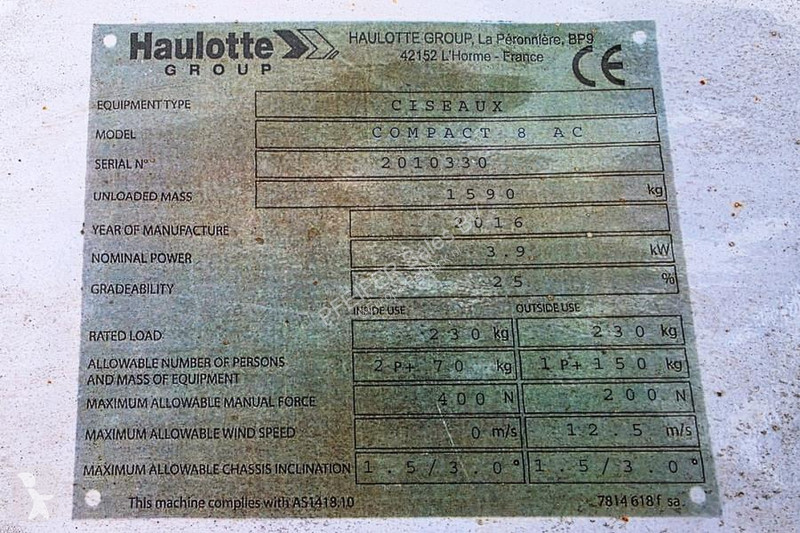 Haulotte
GROUP
HAULOTTE GROUP, La Péronnière, BP9
42152 L'Horme - France
CE
EQUIPMENT TYPE CISEAUX
MODEL COMPACT 8 AC
SERIAL N° 2010330
UNLOADED MASS 1590 kg
YEAR OF MANUFACTURE 2016
NOMINAL POWER 3.9 kW
GRADEABILITY 25 %
INSIDE USE OUTSIDE USE
RATED LOAD 230 kg 230 kg
ALLOWABLE NUMBER OF PERSONS
AND MASS OF EQUIPMENT 2P+ 70 kg 1P+150 kg
MAXIMUM ALLOWABLE MANUAL FORCE 400 N 200 N
MAXIMUM ALLOWABLE WIND SPEED 0 m/s 12.5 m/s
MAXIMUM ALLOWABLE CHASSIS INCLINATION 1.5/3.0° 1.5/3.0°
This machine complies with AS1418.10 7814 618 f sa